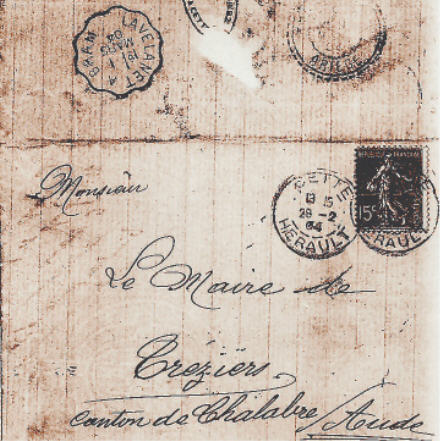 LAVELANET A BRAM
1
MARS
04
ARIEGE
REPUBLIQUE FRANCAISE
15c
CETTE
13 15
29 -2
04
HERAULT
HERAULT
Monsieur
Le Maire de
Treziérs
canton de Chalabre / Aude